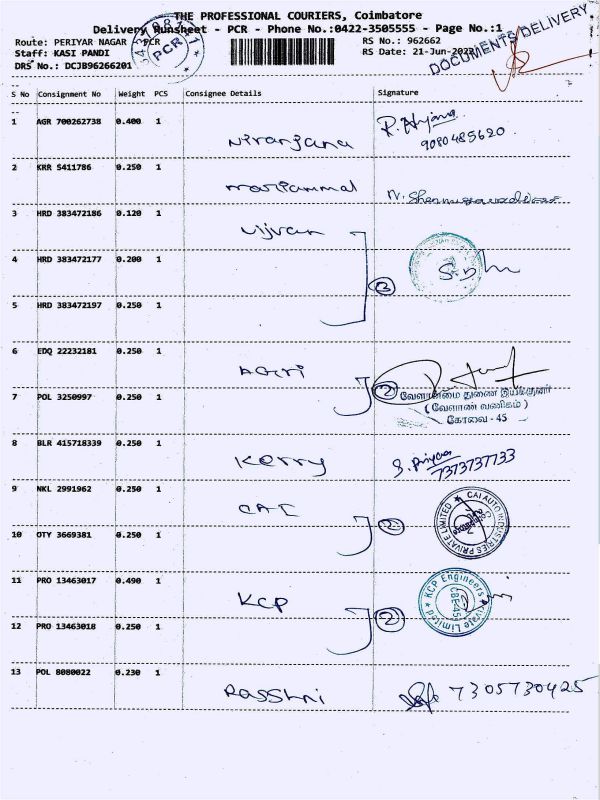 THE PROFESSIONAL COURIERS, Coimbatore
Delivery Runsheet - PCR - Phone No.:0422-3505555 - Page No.:1
Route: PERIYAR NAGAR - PCR
RS No.: 962662
Staff: KASI PANDI
RS Date: 21-Jun-2022
DRS No.: DCJB96266201
PCR
DOCUMENTS DELIVERY
S No Consignment No Weight PCS Consignee Details Signature
1 AGR 700262738 0.400 1 Niranjana
9080485620
2 KRR 5411786 0.250 1 mariammal
3 HRD 383472186 0.120 1
4 HRD 383472177 0.200 1
3
5 HRD 383472197 0.250 1
6 EDQ 22232181 0.250 1 AGRI
7 POL 3250997 0.250 1 2
வேளாண்மை துணை இயக்குனர்
(வேளாண் வணிகம்)
கோவை - 45
8 BLR 415718339 0.250 1 Kerry S. Priya
7373737133
9 NKL 2991962 0.250 1 CAI
10 OTY 3669381 0.250 1 2
CAI AUTO INDUSTRIES PRIVATE LIMITED
11 PRO 13463017 0.490 1 KCP
KCP Engineers Private Limited
CBE-45
12 PRO 13463018 0.250 1 2
13 POL 8080022 0.230 1 7305730425